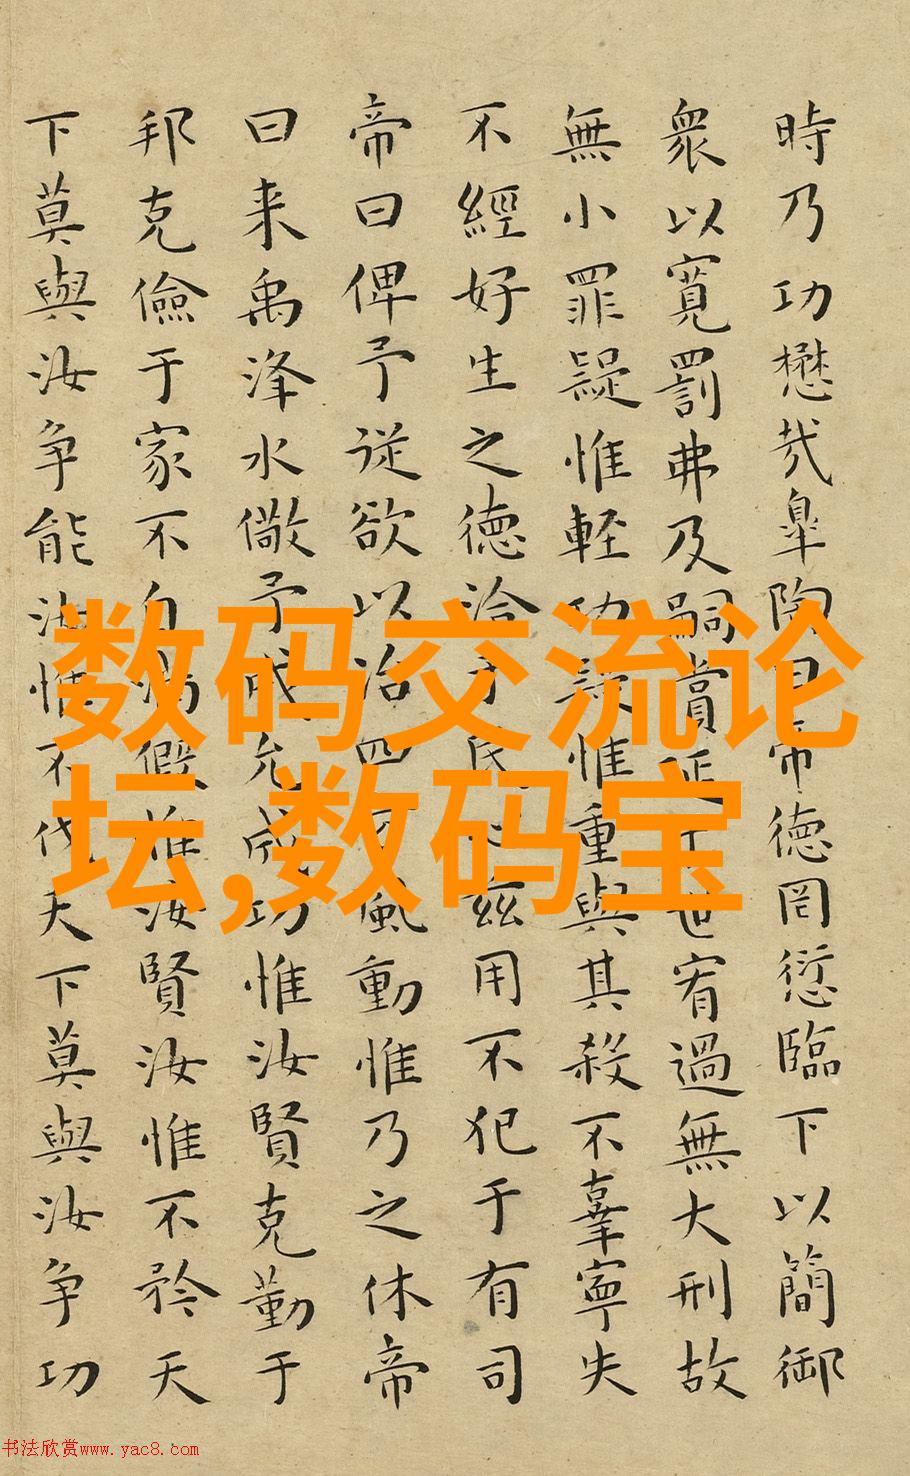 時乃功懋哉皐陶曰帝德罔愆臨下以簡御
衆以寬罰弗及嗣賞延于世宥過無大刑故
無小罪疑惟輕功疑惟重與其殺不辜寧失
不經好生之德洽于民心兹用不犯于有司
帝曰俾予從欲以治四方風動惟乃之休帝
曰来禹洚水儆予成允成功惟汝賢克勤于
邦克儉于家不自滿假惟汝賢汝惟不矜天
下莫與汝争能汝惟不伐天下莫與汝争功
数码交流论
坛,数码宝
书法欣赏www.yac8.com